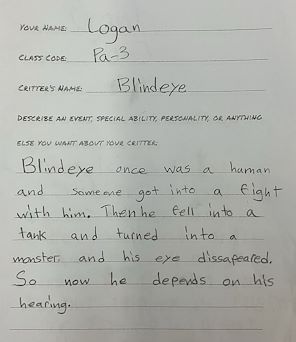 YOUR NAME: Logan
CLASS CODE: Pa-3
CRITTER'S NAME: Blindeye
DESCRIBE AN EVENT, SPECIAL ABILITY, PERSONALITY, OR ANYTHING
ELSE YOU WANT ABOUT YOUR CRITTER:
Blindeye once was a human
and someone got into a fight
with him. Then he fell into a
tank and turned into a
monster, and his eye dissapeared.
So now he depends on his
hearing.